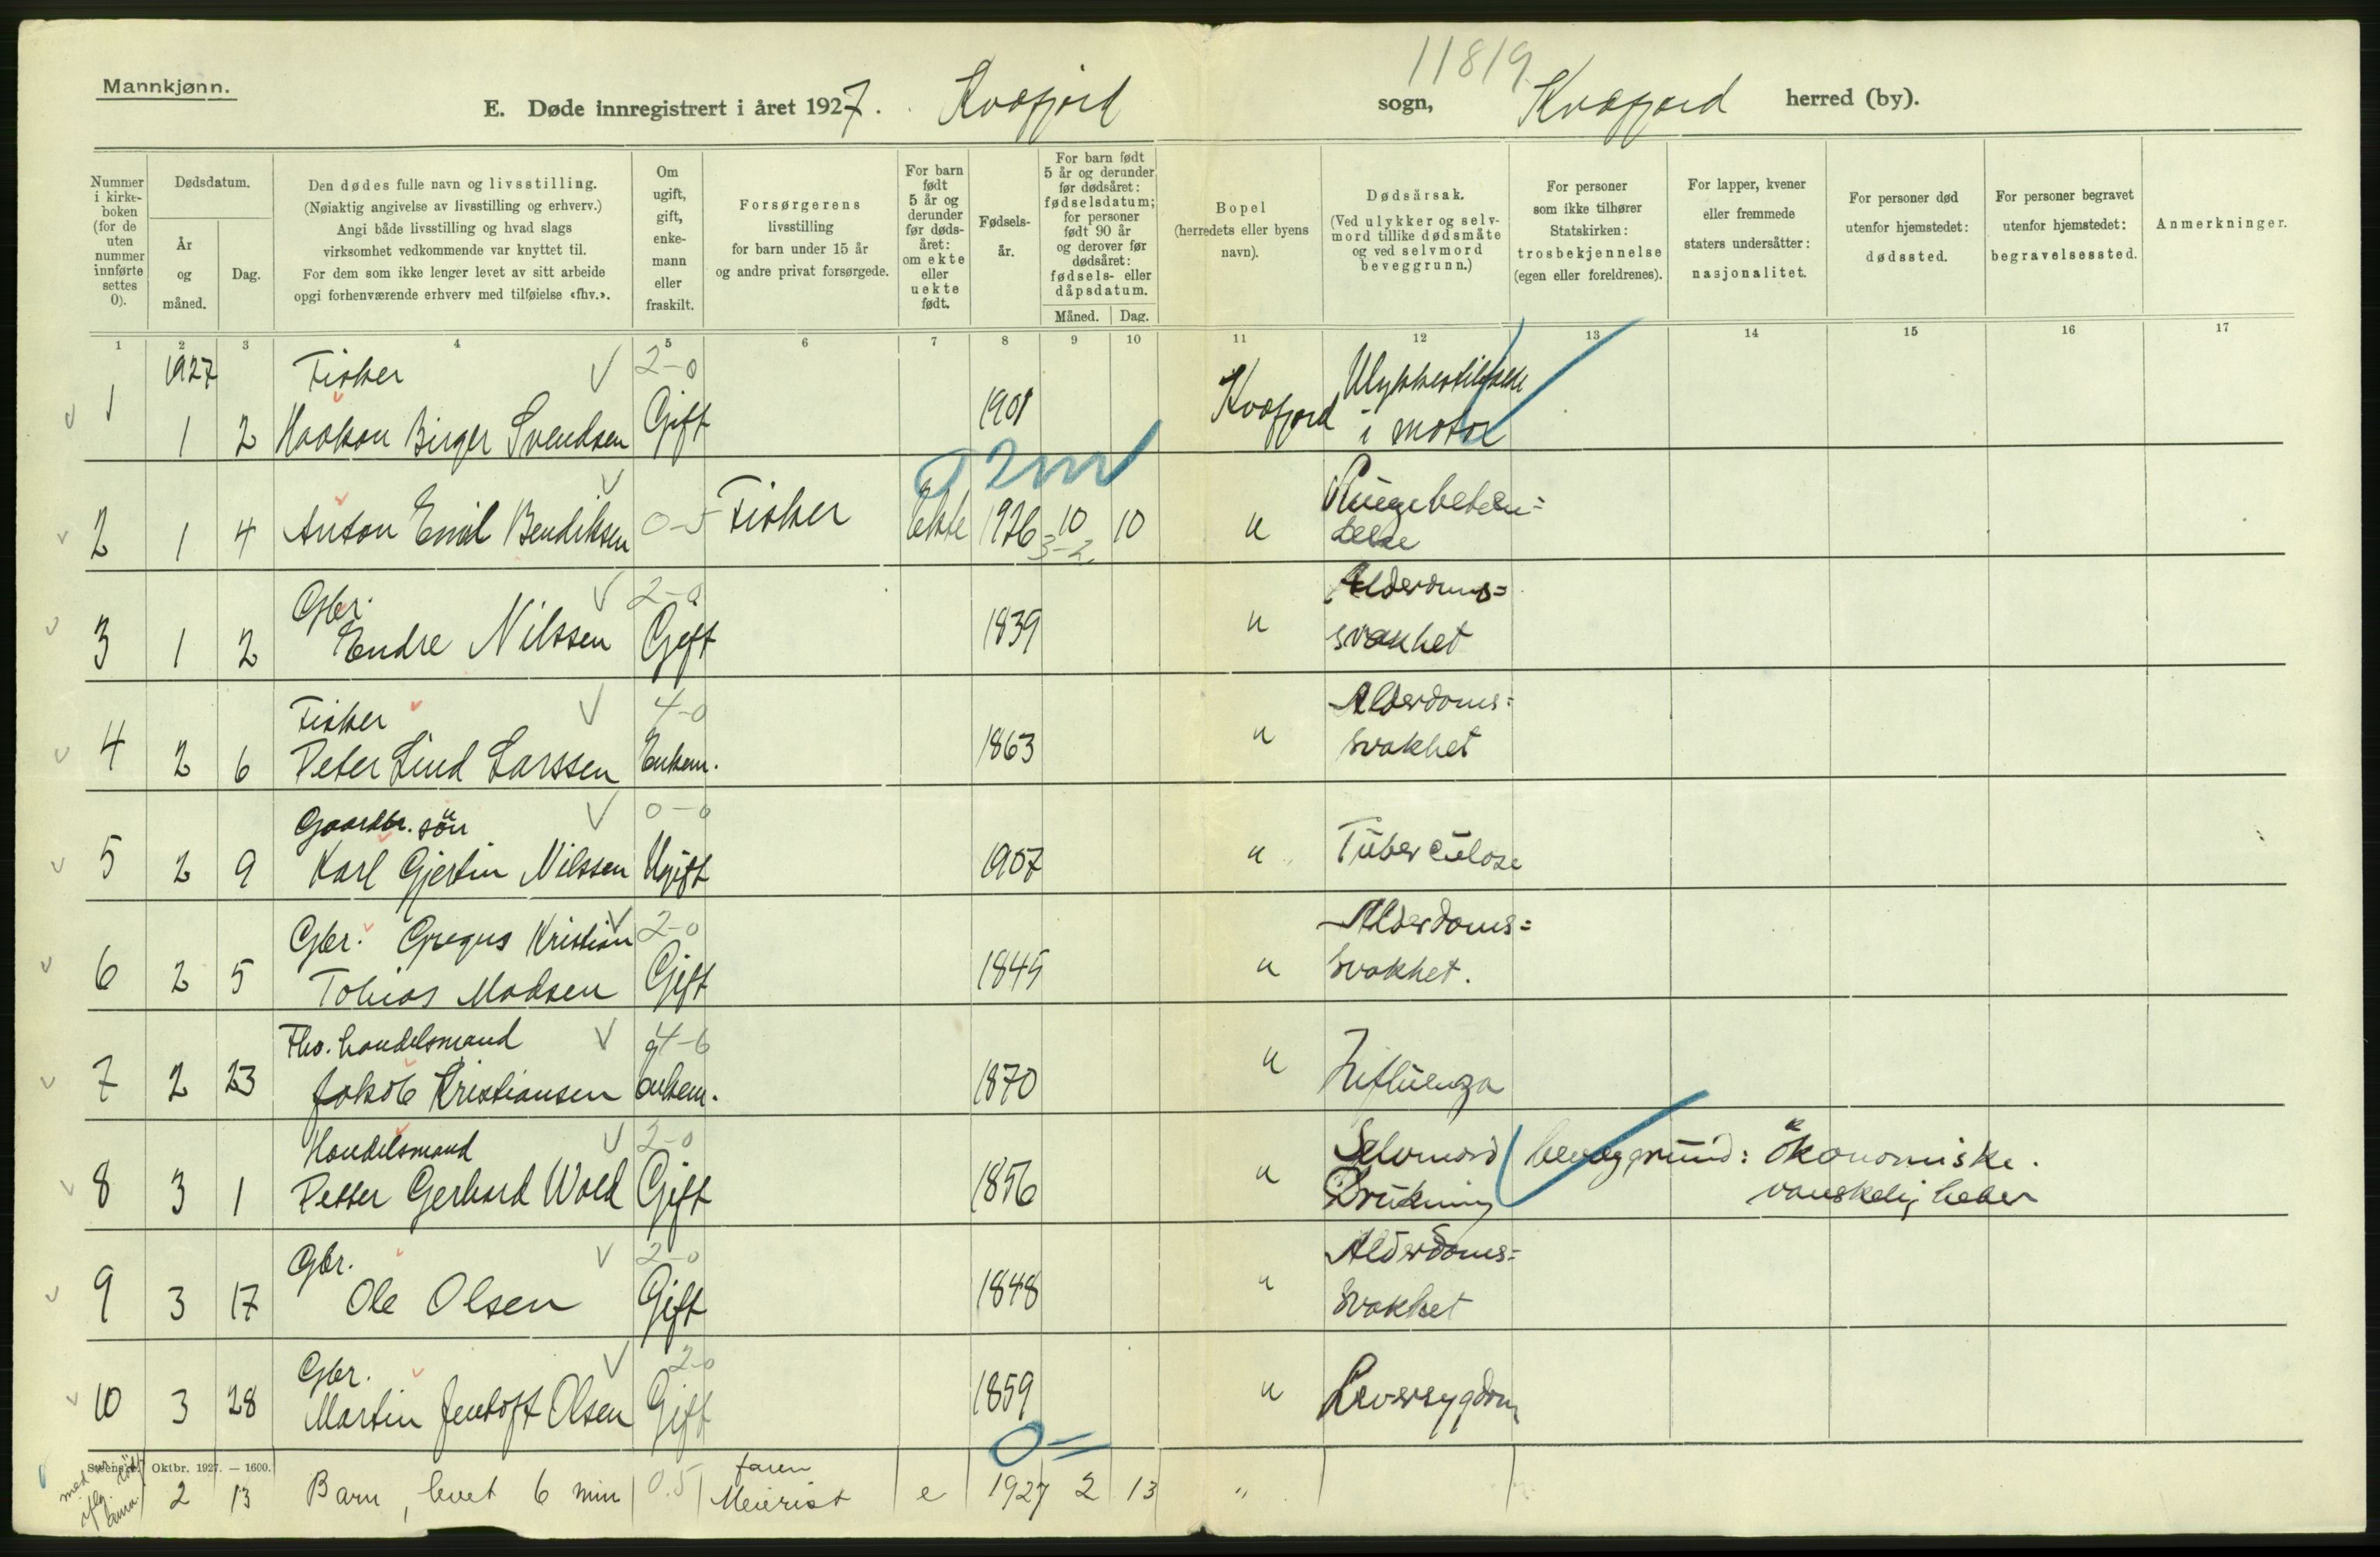 11819
Mannkjønn.
E. Døde innregistrert i året 1927. Kvæfjord sogn, Kvæfjord herred (by).
Nummer i kirkeboken (for de uten nummer innførte settes 0).
Dødsdatum.
År og måned.
Dag.
Den dødes fulle navn og livsstilling.
(Nøiaktig angivelse av livsstilling og erhverv.)
Angi både livsstilling og hvad slags
virksomhet vedkommende var knyttet til.
For dem som ikke lenger levet av sitt arbeide
opgi forhenværende erhverv med tilføielse «fhv.».
Om ugift, gift, enkemann eller fraskilt.
Forsørgerens livsstilling
for barn under 15 år
og andre privat forsørgede.
For barn født 5 år og derunder før dødsåret: om ekte eller uekte født.
Fødselsår.
For barn født 5 år og derunder før dødsåret: fødselsdatum; for personer født 90 år og derover før dødsåret: fødsels- eller dåpsdatum.
Måned. Dag.
Bopel
(herredets eller byens navn).
Dødsårsak.
(Ved ulykker og selvmord tillike dødsmåte og ved selvmord beveggrunn.)
For personer som ikke tilhører Statskirken: trosbekjennelse (egen eller foreldrenes).
For lapper, kvener eller fremmede staters undersåtter: nasjonalitet.
For personer død utenfor hjemstedet: dødssted.
For personer begravet utenfor hjemstedet: begravelsessted.
Anmerkninger.
1 2 3 4 5 6 7 8 9 10 11 12 13 14 15 16 17
1927 Fisker 2-0
1 1 2 Haakon Birger Svendsen Gift 1901 Kvæfjord Ulykkestilfælle
i motor
2m
2 1 4 Anton Emil Bendiksen 0-5 Fisker Ekte 1926 10 10 " Lungebeten=
delse
3-2
Gbr. 2-0 Alderdoms=
3 1 2 Endre Nilssen Gift 1839 " svakhet
Fisker 4-0 Alderdoms=
4 2 6 Peter Lind Larssen Enkem. 1863 " svakhet
Gaardbr. sön 0-0
5 2 9 Karl Gjertin Nilssen Ugift 1907 " Tuberculose
Gbr. Gregus Kristian 2-0 Alderdoms=
6 2 5 Tobias Madsen Gift 1845 " svakhet.
Fhv. handelsmand 4-6
7 2 23 Jakob Kristiansen enkem. 1870 " Influenza
Handelsmand 2-0 Selvmord beveggrund: ökonomiske
8 3 1 Petter Gerhard Wold Gift 1856 " Drukning vanskeligheter
Gbr. 2-0 Alderdoms=
9 3 17 Ole Olsen Gift 1848 " svakhet
Gbr. 2-0
10 3 28 Martin Jentoft Olsen Gift 1859 " Leversygdom
0=
Oktbr. 1927. — 1600.
faren
2 13 Barn, levet 6 min 0.5 Meierist e 1927 2 13 "